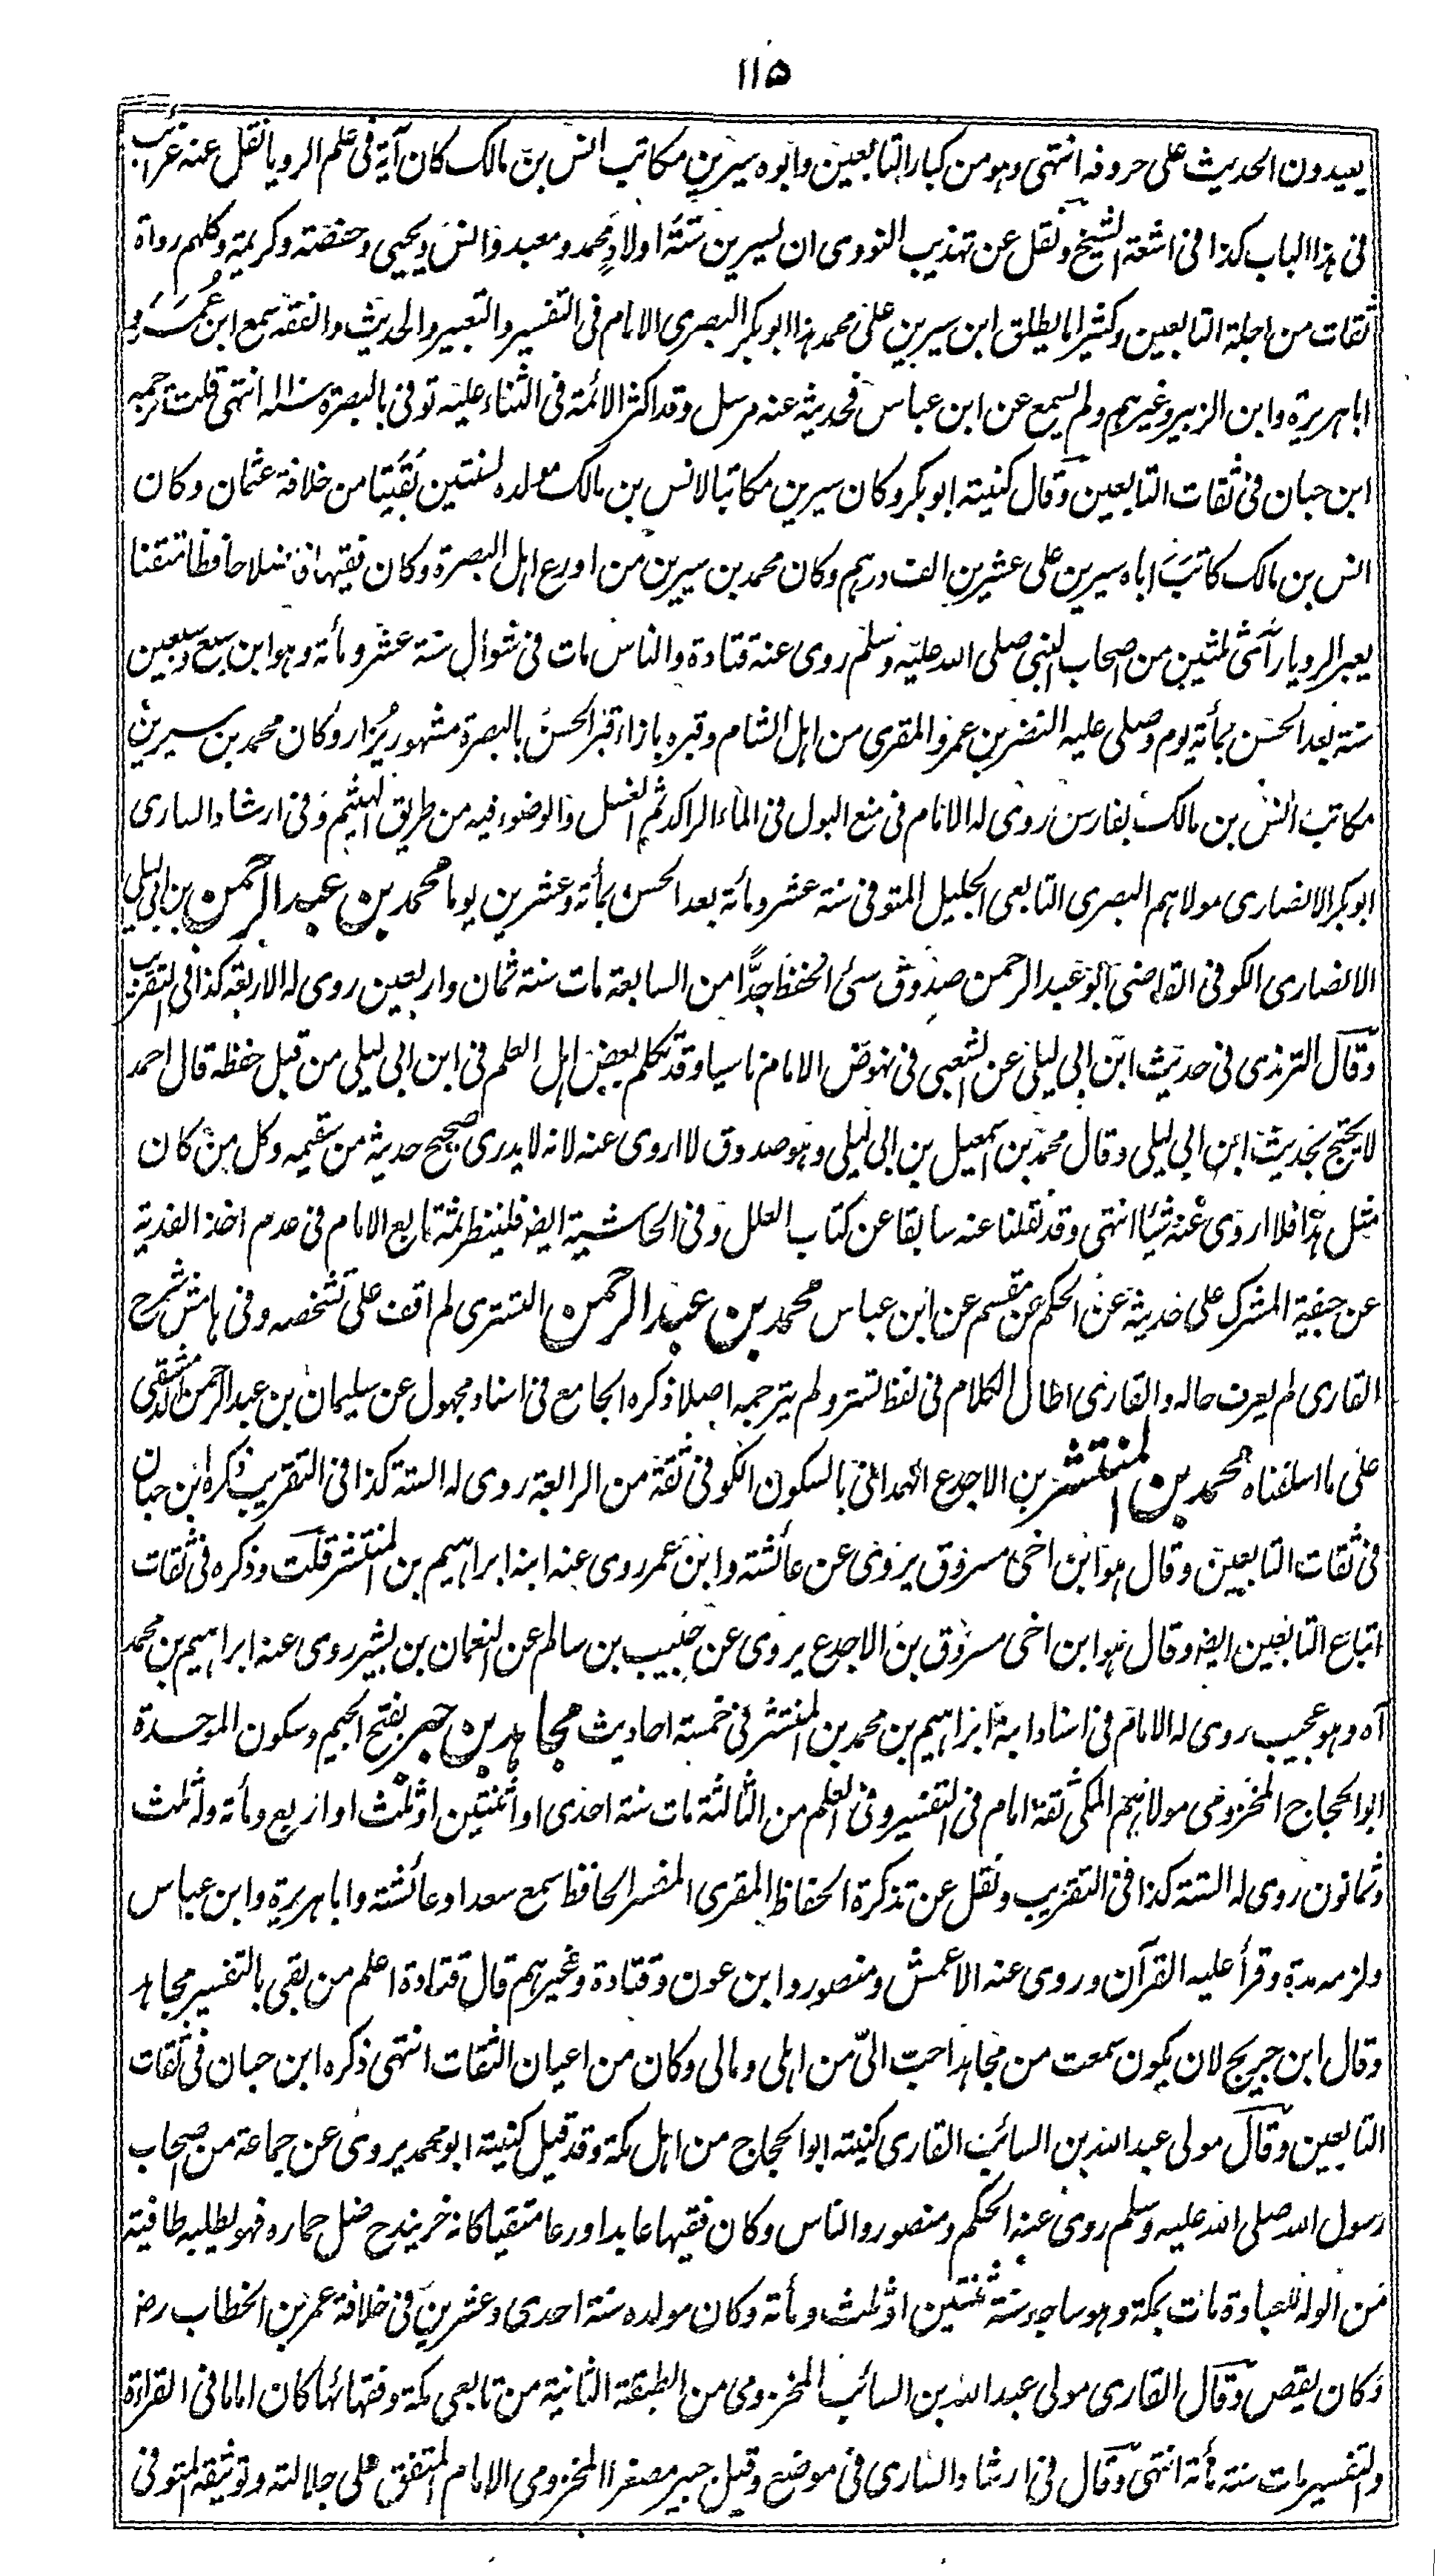 ١١٥
يعيدون الحديث على حروفه انتهى وهو من كبار التابعين وابوه سيرين مكاتب انس بن مالك كان آية فى علم الرويا نقل عنه غرائب
فى هذا الباب كذا فى اشعة الشيخ ونقل عن تهذيب النووى ان لسيرين ستة اولاد محمد ومعبد وانس ويحيى وحفصة وكريمة وكلهم رواة
ثقات من اجلة التابعين وكثيرا ما يطلق ابن سيرين على محمد هذا ابو بكر البصرى الامام فى التفسير والتعبير والحديث والفقه سمع ابن عمر و
ابا هريرة وابن الزبير وغيرهم ولم يسمع عن ابن عباس فحديثه عنه مرسل وقد اكثر الائمة فى الثناء عليه توفى بالبصرة سنة انتهى قلت ترجمه
ابن حبان فى ثقات التابعين وقال كنيته ابو بكر وكان سيرين مكاتبا لانس بن مالك مولده لسنتين بقيتا من خلافة عثمان وكان
انس بن مالك كاتب اباه سيرين على عشرين الف درهم وكان محمد بن سيرين من اورع اهل البصرة وكان فقيها فاضلا حافظا متقنا
يعبر الرويا رأى ثلثين من اصحاب النبى صلى الله عليه وسلم روى عنه قتادة والناس مات فى شوال سنة عشر ومأة وهو ابن سبع وسبعين
سنة بعد الحسن بمأة يوم وصلى عليه النضر بن عمرو المقرى من اهل الشام وقبره بازاء قبر الحسن بالبصرة مشهور يزار وكان محمد بن سيرين
مكاتب انس بن مالك بفارس روى له الامام فى منع البول فى الماء الراكد ثم الغسل والوضوء فيه من طريق الهيثم وفى ارشاد السارى
ابو بكر الانصارى مولاهم البصرى التابعى الجليل المتوفى سنة عشر ومأة بعد الحسن بمأة وعشرين يوما محمد بن عبد الرحمن بن ابى ليلى
الانصارى الكوفى القاضى ابو عبد الرحمن صدوق سئ الحفظ جدًّا من السابعة مات سنة ثمان واربعين روى له الاربعة كذا فى التقريب
وقال الترمذى فى حديث ابن ابى ليلى عن الشعبى فى نهوض الامام ناسيا وقد تكلم بعض اهل العلم فى ابن ابى ليلى من قبل حفظه قال احمد
لا يحتج بحديث ابن ابى ليلى وقال محمد بن اسمعيل بن ابى ليلى وهو صدوق لا اروى عنه لانه لا يدرى صحيح حديثه من سقيمه وكل من كان
مثل هذا فلا اروى عنه شيئا انتهى وقد نقلنا عنه سابقا عن كتاب العلل وفى الحاشية ايضا فلينظر ثمة تابع الامام فى عدم اخذ الفدية
عن جيفة المشرك على حديثه عن الحكم عن مقسم عن ابن عباس محمد بن عبد الرحمن التسترى لم اقف على تشخصه وفى هامش شرح
القارى لم يعرف حاله والقارى اطال الكلام فى لفظ تستر ولم يترجمه اصلا ذكره الجامع فى اسناد مجهول عن سليمان بن عبد الرحمن الدمشقى
على ما اسلفناه محمد بن المنتشر بن الاجدع الهمدانى بالسكون الكوفى ثقة من الرابعة روى له الستة كذا فى التقريب ذكره ابن حبان
فى ثقات التابعين وقال هو ابن اخى مسروق يروى عن عائشة وابن عمر روى عنه ابنه ابراهيم بن المنتشر قلت وذكره فى ثقات
اتباع التابعين ايضا وقال هو ابن اخى مسروق بن الاجدع يروى عن حبيب بن سالم عن النعمان بن بشير روى عنه ابراهيم بن محمد
آه وهو عجيب روى له الامام فى اسناد ابنه ابراهيم بن محمد بن المنتشر فى خمسة احاديث مجاهد بن جبر بفتح الجيم وسكون الموحدة
ابو الحجاج المخزومى مولاهم المكى ثقة امام فى التفسير وفى العلم من الثالثة مات سنة احدى او اثنتين او ثلث او اربع ومأة وله ثلث
وثمانون روى له الستة كذا فى التقريب ونقل عن تذكرة الحفاظ المقرى المفسر الحافظ سمع سعدا وعائشة وابا هريرة وابن عباس
ولزمه مدة وقرأ عليه القرآن وروى عنه الاعمش ومنصور وابن عون وقتادة وغيرهم قال قتادة اعلم من بقى بالتفسير مجاهد
وقال ابن جريج لان يكون سمعت من مجاهد احب الىّ من اهلى ومالى وكان من اعيان الثقات انتهى ذكره ابن حبان فى ثقات
التابعين وقال مولى عبد الله بن السائب القارى كنيته ابو الحجاج من اهل مكة وقد قيل كنيته ابو محمد يروى عن جماعة من اصحاب
رسول الله صلى الله عليه وسلم روى عنه الحكم ومنصور والناس وكان فقيها عابدا ورعا متقيا كانه خربندج ضل حماره فهو يطلبه
من الوله للعبادة مات بمكة وهو ساجد سنة ثنتين او ثلث ومأة وكان مولده سنة احدى وعشرين فى خلافة عمر بن الخطاب رض
وكان يقص وقال القارى مولى عبد الله بن السائب المخزومى من الطبقة الثانية من تابعى مكة وفقهائها كان اماما فى القراءة
والتفسير مات سنة مأة انتهى وقال فى ارشاد السارى فى موضع وقيل جبير مصغرا المخزومى الامام المتفق على جلالته وتوثيقه المتوفى